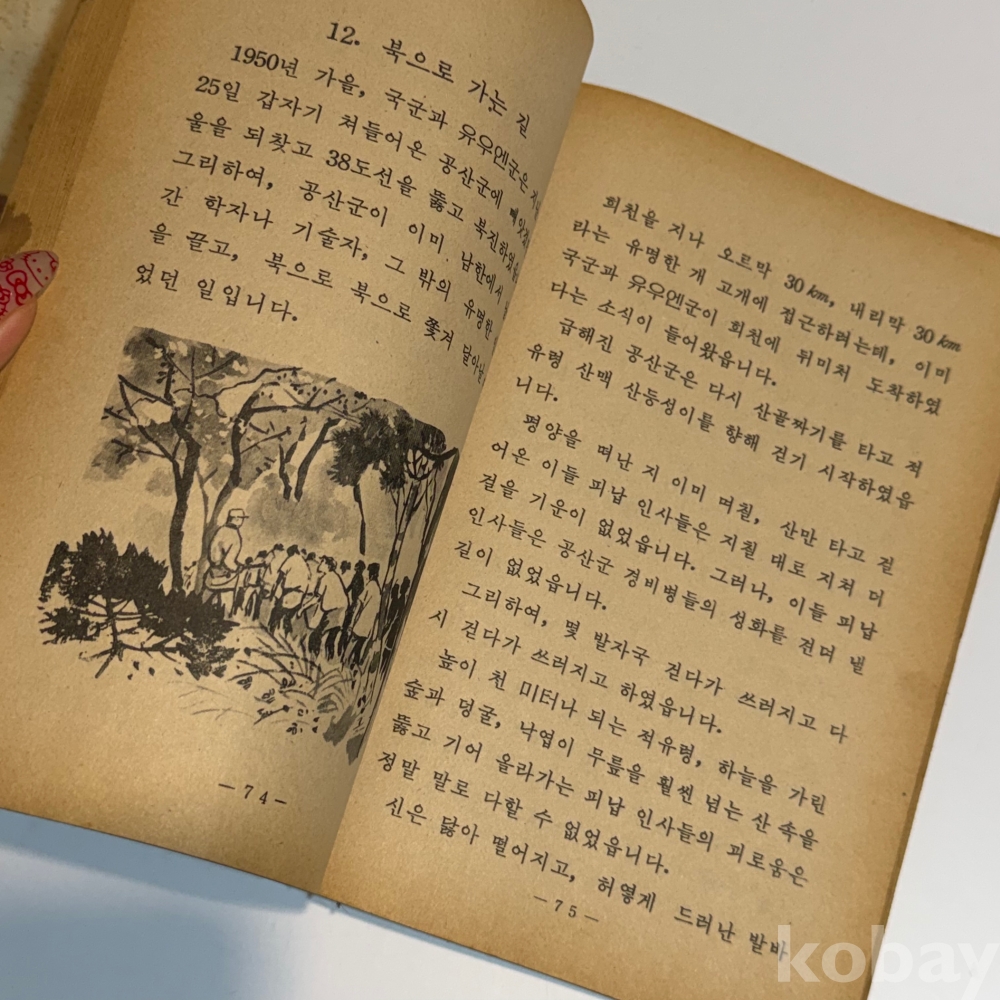 12. 북으로 가는 길
1950년 가을, 국군과 유우엔군은
25일 갑자기 쳐들어온 공산군에
울을 되찾고 38도선을 뚫고 북진하였
그리하여, 공산군이 이미 남한에서
간 학자나 기술자, 그 밖의 유명한
을 끌고, 북으로 북으로 쫓겨 달아났
었던 일입니다.
—74—
희천을 지나 오르막 30km, 내리막 30km
라는 유명한 개 고개에 접근하려는데, 이미
국군과 유우엔군이 희천에 뒤미처 도착하였
다는 소식이 들어왔읍니다.
급해진 공산군은 다시 산골짜기를 타고 적
유령 산맥 산등성이를 향해 걷기 시작하였읍
니다.
평양을 떠난 지 이미 며칠, 산만 타고 걸
어온 이들 피납 인사들은 지칠 대로 지쳐 더
걸을 기운이 없었읍니다. 그러나, 이들 피납
인사들은 공산군 경비병들의 성화를 견뎌 낼
길이 없었읍니다.
그리하여, 몇 발자국 걷다가 쓰러지고 다
시 걷다가 쓰러지고 하였읍니다.
높이 천 미터나 되는 적유령, 하늘을 가린
숲과 덩굴, 낙엽이 무릎을 훨씬 넘는 산 속을
뚫고 기어 올라가는 피납 인사들의 괴로움은
정말 말로 다할 수 없었읍니다.
신은 닳아 떨어지고, 허옇게 드러난 발바
—75—
kobay